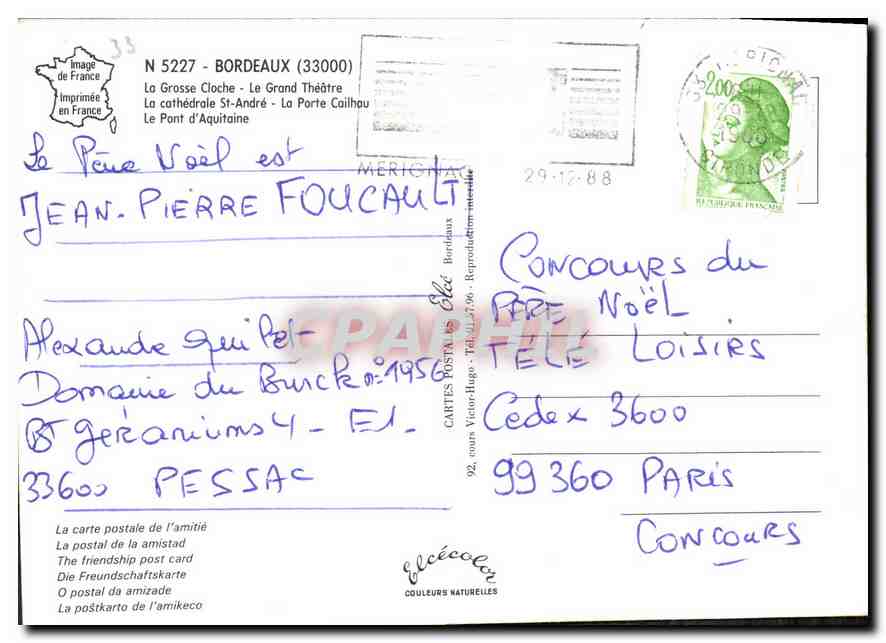 33
Image
de France
Imprimée
en France
N 5227 - BORDEAUX (33000)
La Grosse Cloche - Le Grand Théâtre
La cathédrale St-André - La Porte Cailhau
Le Pont d'Aquitaine
MERIGNAC
29-12-88
33 MERIGNAC
GIRONDE
2,00
REPUBLIQUE FRANÇAISE
Le Père Noël est
JEAN-PIERRE FOUCAULT
Alexandre
Domaine du Burck n° 1956
Bt géraniums 4 - E1.
33600 PESSAC
CARTES POSTALES Elcé Bordeaux
92, cours Victor-Hugo - Tél. 91.37.96 - Reproduction interdite
CONCOURS du
PÈRE NOËL
TÉLÉ LOISIRS
Cedex 3600
99360 PARIS
CONCOURS
CPAPHIL
La carte postale de l'amitié
La postal de la amistad
The friendship post card
Die Freundschaftskarte
O postal da amizade
La poŝtkarto de l'amikeco
Elcécolor
COULEURS NATURELLES